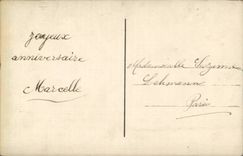 Joyeux
anniversaire
Marcelle
Mademoiselle
Lehmann
Paris